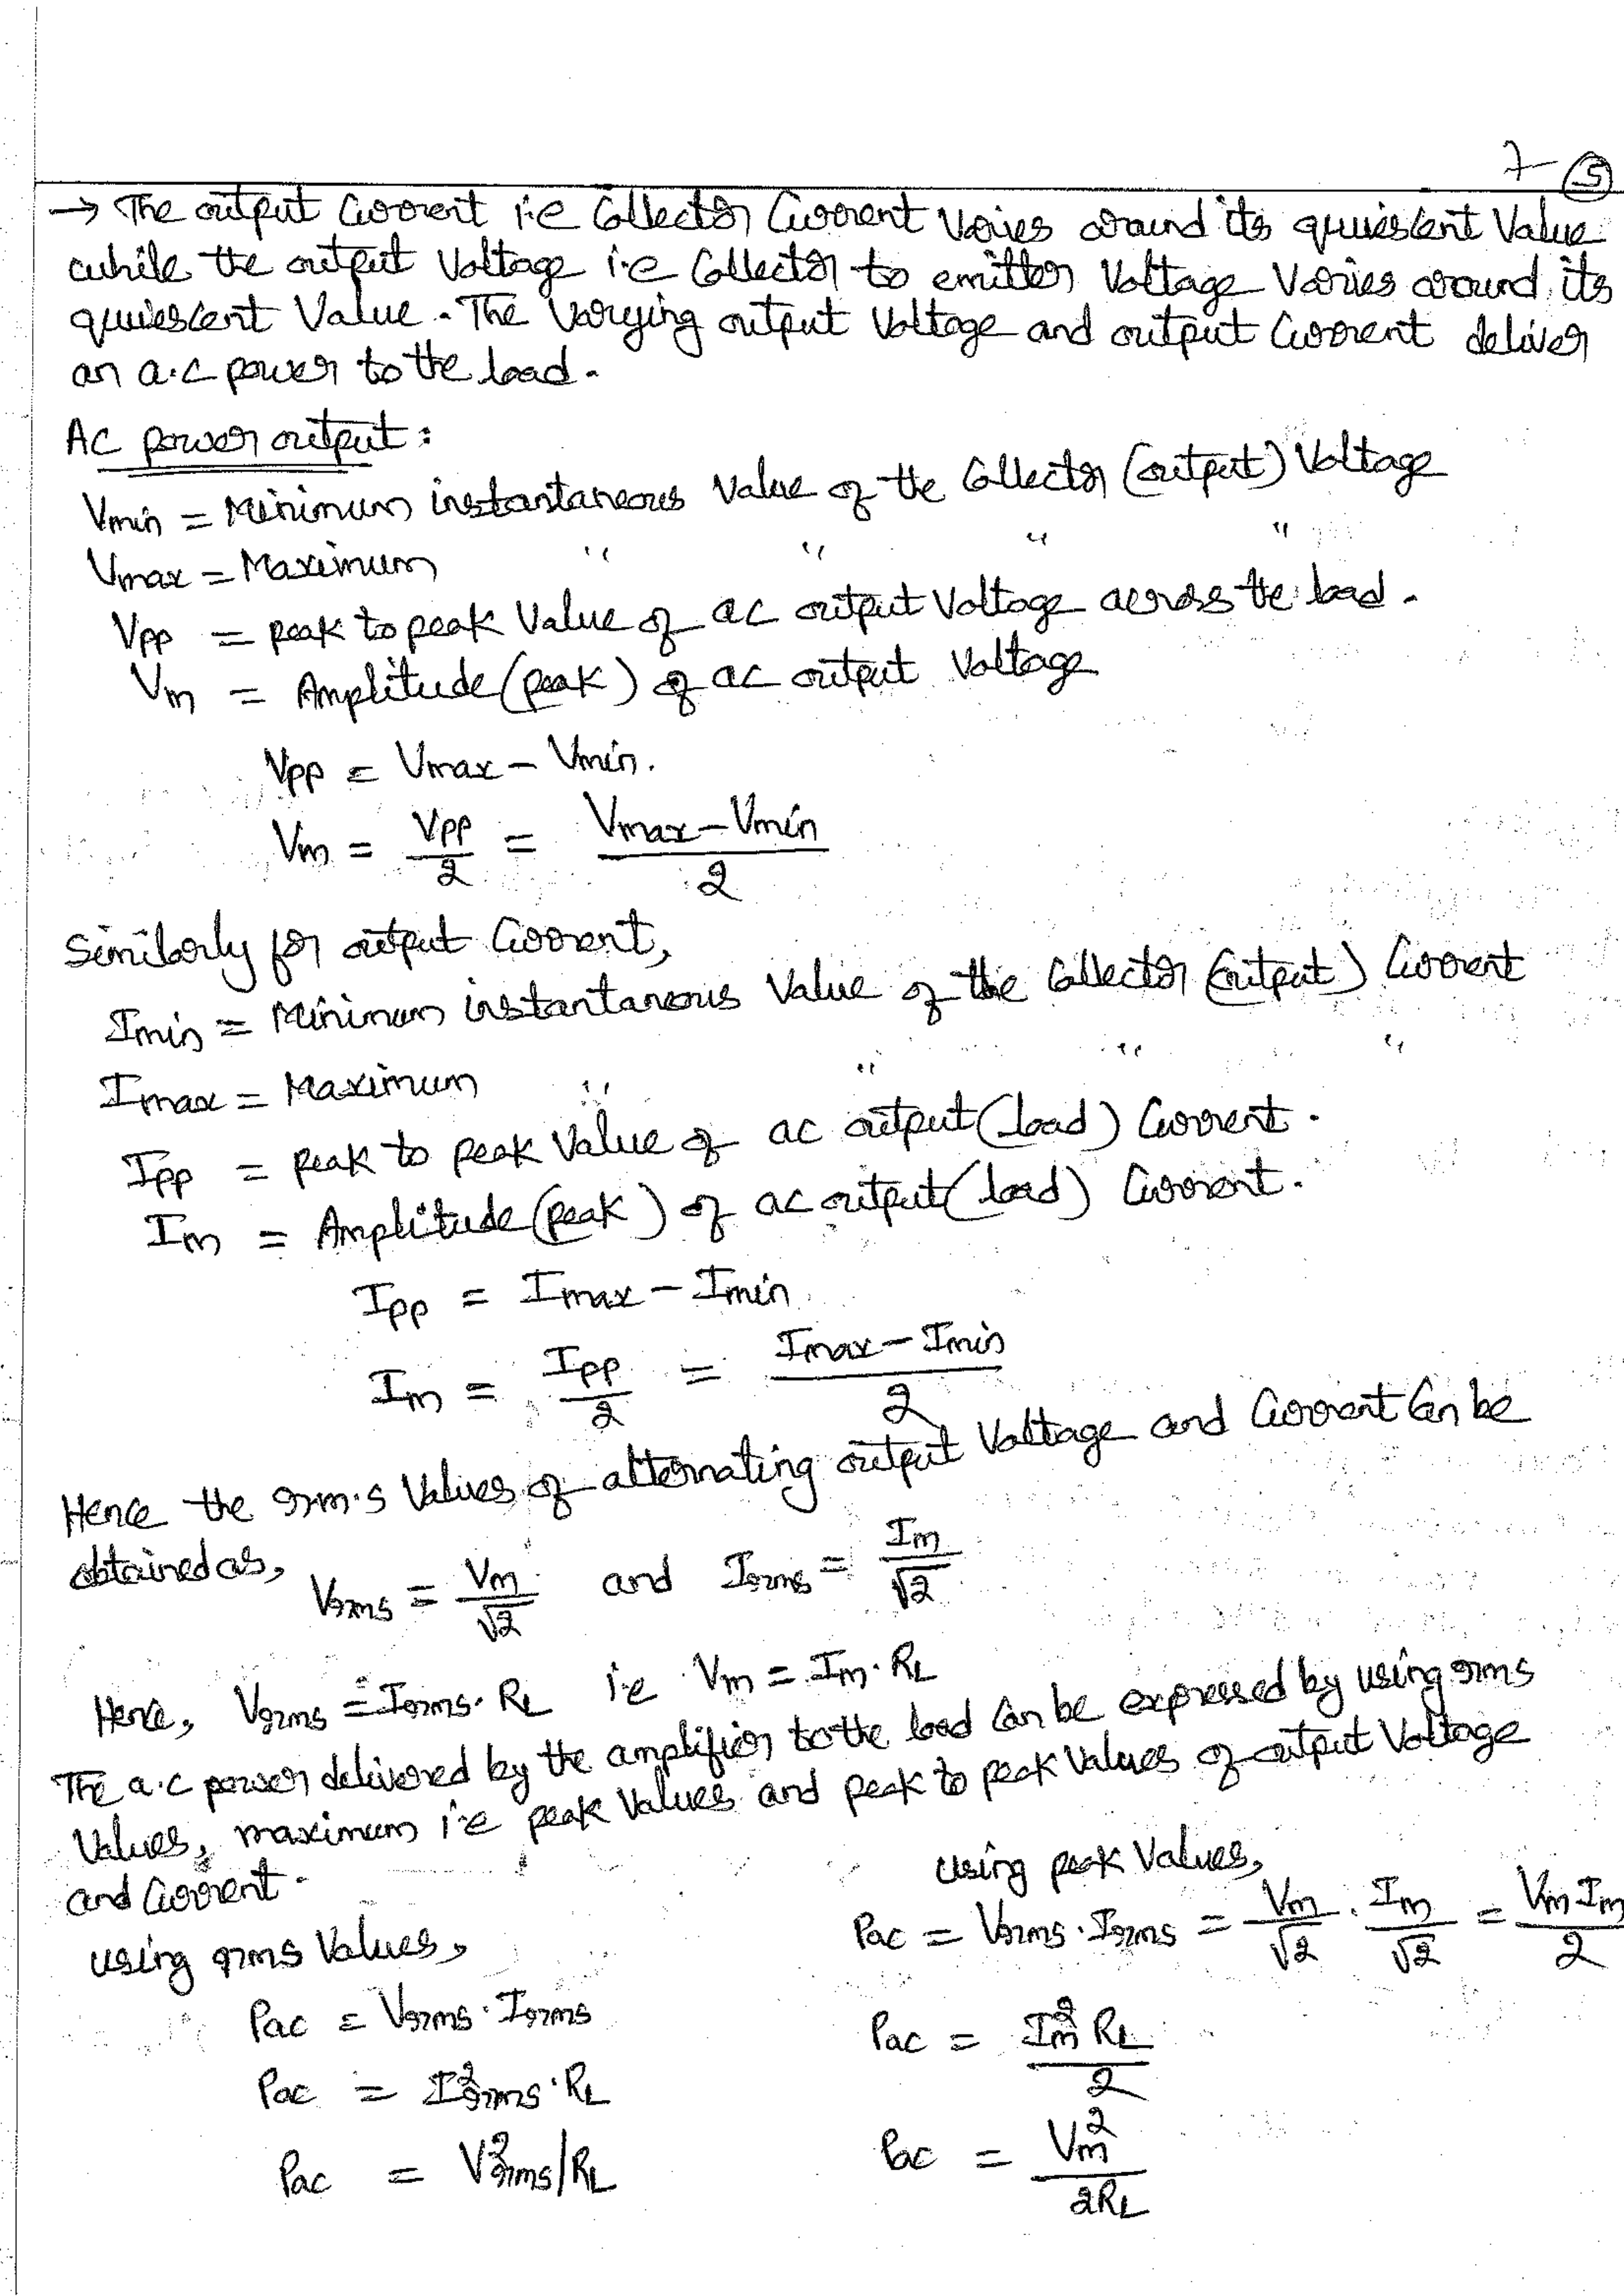 7-⑤
→ The output Current i.e Collector Current Varies around its quiescent Value
while the output Voltage i.e Collector to emitter Voltage Varies around its
quiescent Value. The Varying output Voltage and output Current deliver
an a.c power to the load.
AC power output:
Vmin = Minimum instantaneous Value of the Collector (output) Voltage
Vmax = Maximum " " " "
Vpp = peak to peak Value of ac output Voltage across the load.
Vm = Amplitude (peak) of ac output Voltage
Vpp = Vmax - Vmin.
Vm = Vpp/2 = (Vmax - Vmin)/2
Similarly for output Current,
Imin = Minimum instantaneous Value of the Collector (output) Current
Imax = Maximum " " " "
Ipp = peak to peak Value of ac output (load) Current.
Im = Amplitude (peak) of ac output (load) Current.
Ipp = Imax - Imin
Im = Ipp/2 = (Imax - Imin)/2
Hence the r.m.s Values of alternating output Voltage and Current Can be
obtained as,
Vrms = Vm/√2 and Irms = Im/√2
Hence, Vrms = Irms. RL i.e Vm = Im. RL
The a.c power delivered by the amplifier to the load Can be expressed by using rms
Values, maximum i.e peak Values and peak to peak Values of output Voltage
and Current.
using rms Values,
Pac = Vrms . Irms
Pac = I²rms . RL
Pac = V²rms/RL
using peak Values,
Pac = Vrms . Irms = Vm/√2 . Im/√2 = Vm Im/2
Pac = Im² RL/2
Pac = Vm²/2RL